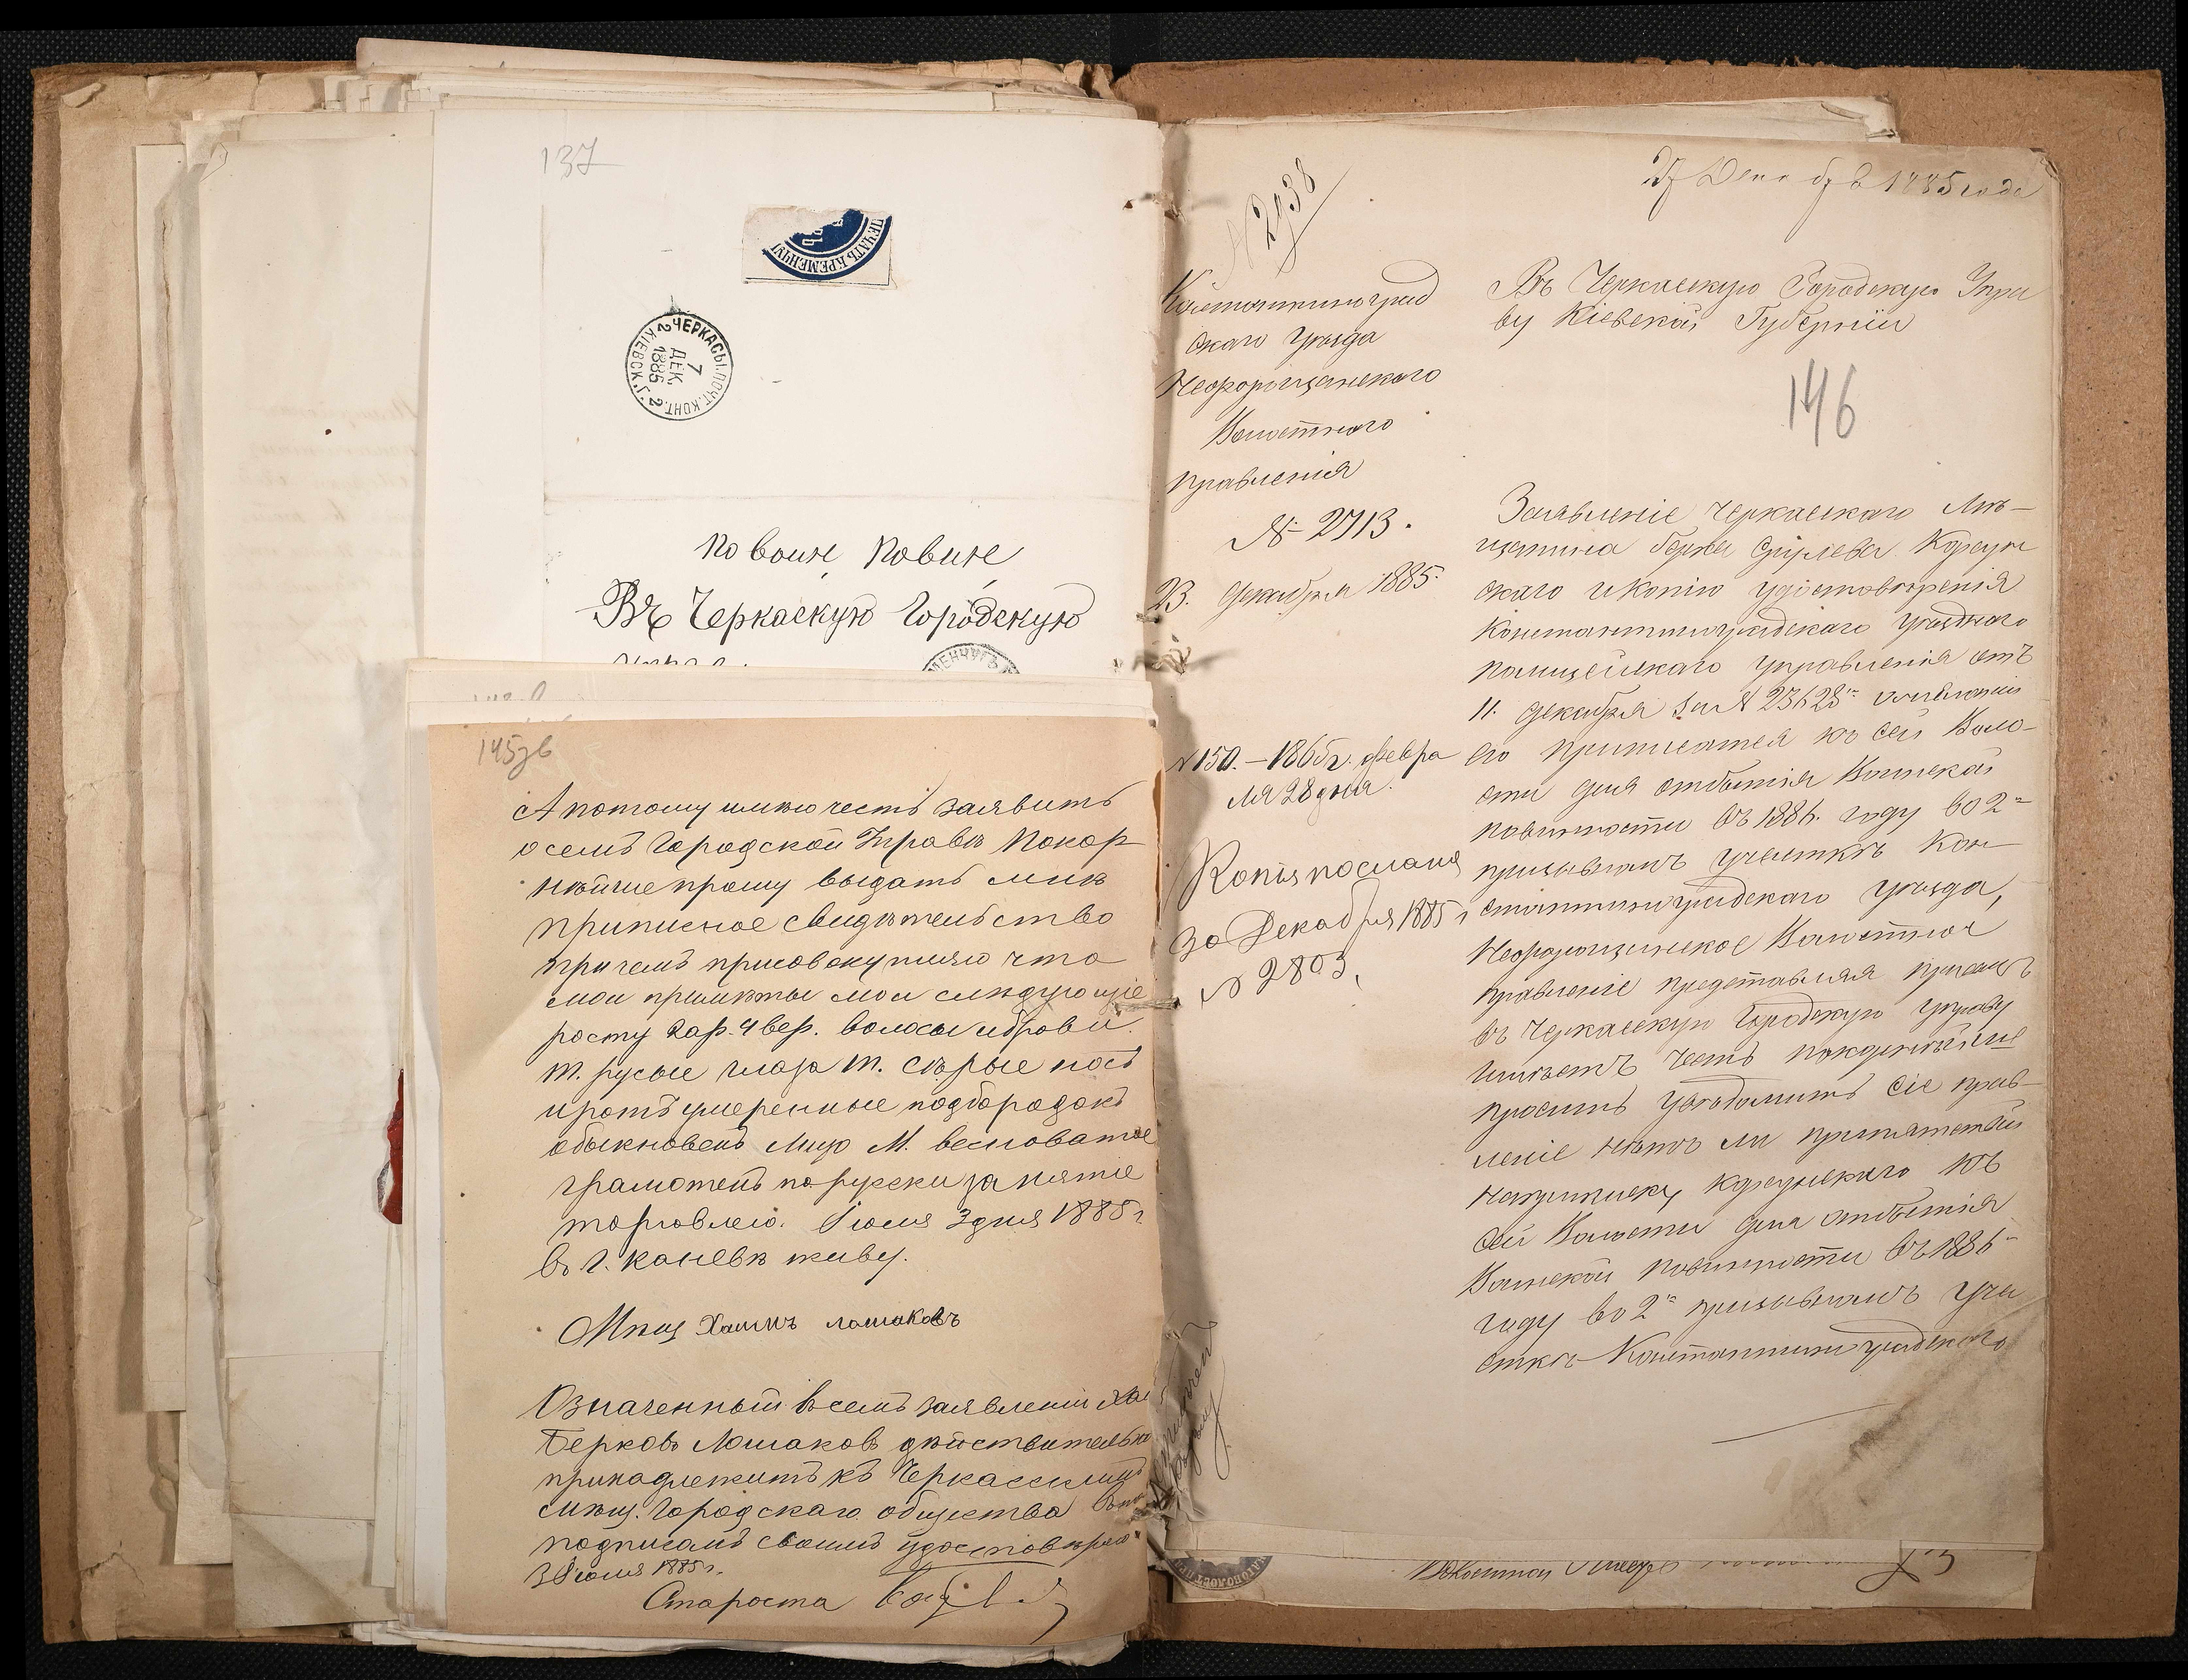 137
ПЕЧАТЬ КРЕМЕНЧУГ
ЧЕРКАСЫ ПОЧТ. КОНТ.
7
ДЕК.
1885
КІЕВСК. Г.
2
2
По воин. повин.
Въ Черкаскую Городскую
МЕНЧУГЪ
145 об
А потому имѣю честь заявить
о семъ Городской Управѣ Покор
нѣйше прошу выдать мнѣ
приписное свидѣтельство
при чемъ присовокупляю что
мои примѣты мои слѣдующіе
росту 2 ар. 4 вер. волосы и брови
т. русые глаза т. сѣрые носъ
и ротъ умеренные подбородокъ
обыкновенъ лицо м. весноватое
грамотенъ по русски занятіе
торговлею. Іюля 3 дня 1885 г
въ г. Каневѣ живу.
Мѣщ Хаимъ Лошаковъ
Означенный в семъ заявленіи Хаи
Берковъ Лошаковъ дѣйствительно
принадлежитъ къ Черкасским
мѣщ. Городскаго общества
подписомъ своимъ удостовѣряю
3 Іюля 1885 г.
Староста
27 Декабр 1885 года
№ 2938
Константиноград
скаго Уѣзда
Нефорощанскаго
Волостного
Правленія
№ 2713.
23. Декабря 1885.
№ 150. – 1865 г. Февра
ля 28 дня.
Копія послана
30 Декабря 1885 г
№ 2803.
Въ Черкаскую Городскую Упра
ву Кіевской Губерніи
146
Заявленіе Черкаскаго Мѣ-
щанина Берка Корсун
скаго и копію удостовѣренія
Константиноградскаго Уѣзднаго
полицейскаго управленія отъ
11. декабря за № 23628 о желаніи
его приписатся къ сей Воло-
сти для отбытія Воинской
повинности въ 1886. году во 2-
призывномъ участкѣ Кон-
стантиноградскаго уѣзда,
Нефорощанское Волостное
правленіе представляя при семъ
въ Черкаскую Городскую управу
имѣетъ честь покорнѣйше
просить увѣдомить сіе прав-
леніе нѣтъ ли препятствій
на приписку Корсунскаго къ
сей Волости для отбытія
Воинской повинности въ 1886-
году во 2- призывномъ уча
сткѣ Константиноградскаго